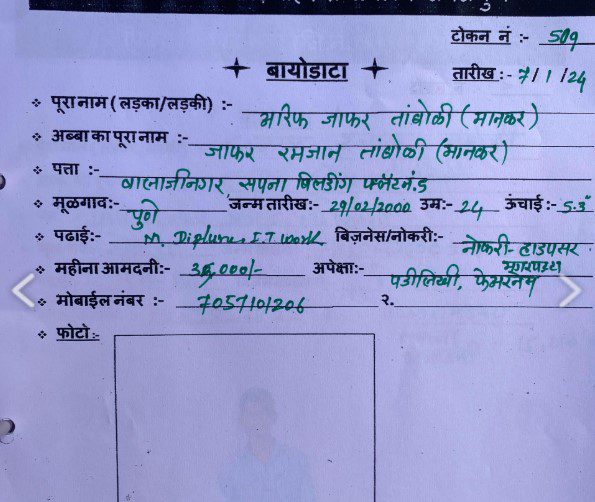 टोकन नं :- 509
बायोडाटा
तारीख :- 7/1/24
पूरा नाम (लड़का/लड़की) :- आरिफ जाफर तांबोळी (मानकर)
अब्बा का पूरा नाम :- जाफर रमजान तांबोळी (मानकर)
पत्ता :- बालाजीनगर, सपना बिलडींग
मूळगाव:- पुणे जन्म तारीख:- 29/02/2000 उम्र:- 24 ऊंचाई:- 5.3"
पढाई:- M. Diploma, I.T work बिज़नेस/नोकरी:- नोकरी- हाडपसर
महीना आमदनी:- 35,000/- अपेक्षा:- पढीलिखी,
मोबाईल नंबर :- 7057101206 २.
फोटो:-